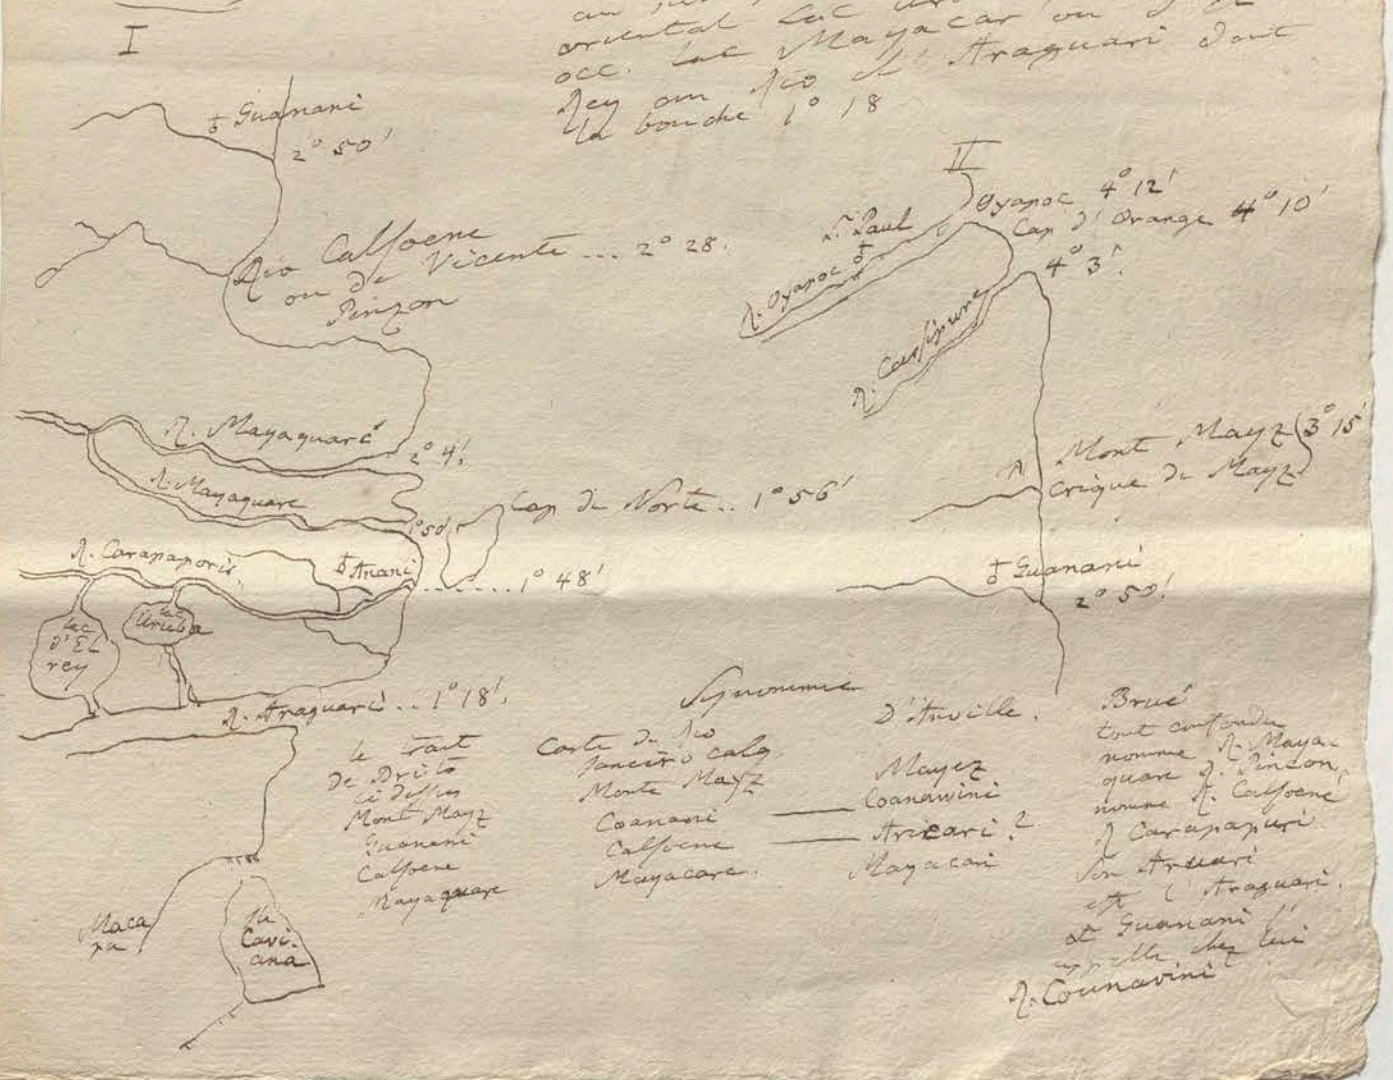 I
oriental lac
occ. lac Mayacar ou
Rey au Rio d'Araguari dont
la bouche 1° 18
Guanani
2° 50'
Rio Calsoene
ou de Vicente ... 2° 28.
Pinzon
R. Mayaquaré
2° 4'.
R. Mayaquare
1° 50'
Cap de Norte .. 1° 56'
R. Carapaporis.
Anani
....... 1° 48'
lac
d'El
rey
lac
Uruba
R. Araguari .. 1° 18'.
Macapa
Ile
Caviana
II
Oyapoc 4° 12'
Cap d'Orange 4° 10'
4° 3'.
S. Paul
R. Oyapoc
R. Cassipure
Mont Mayz 3° 15'
Crique de Mayz
Guanani
2° 50'
Synonymie
le trait
de Brito
ci dessus
Mont Mayz
Guanani
Calsoene
Mayaquare
Carte de Rio
Janeiro calq.
Monte Mayz
Coanani
Calsoene
Mayacare.
D'Anville.
Mayez
Coanawini
Aricari?
Mayacari
Brué
tout confondu
nomme R. Mayaquare
R. Pinçon,
nomme R. Calsoene
R Carapapuri
Son Aruari
est l'Araguari.
et Guanani s'
appelle chez lui
R. Counavini